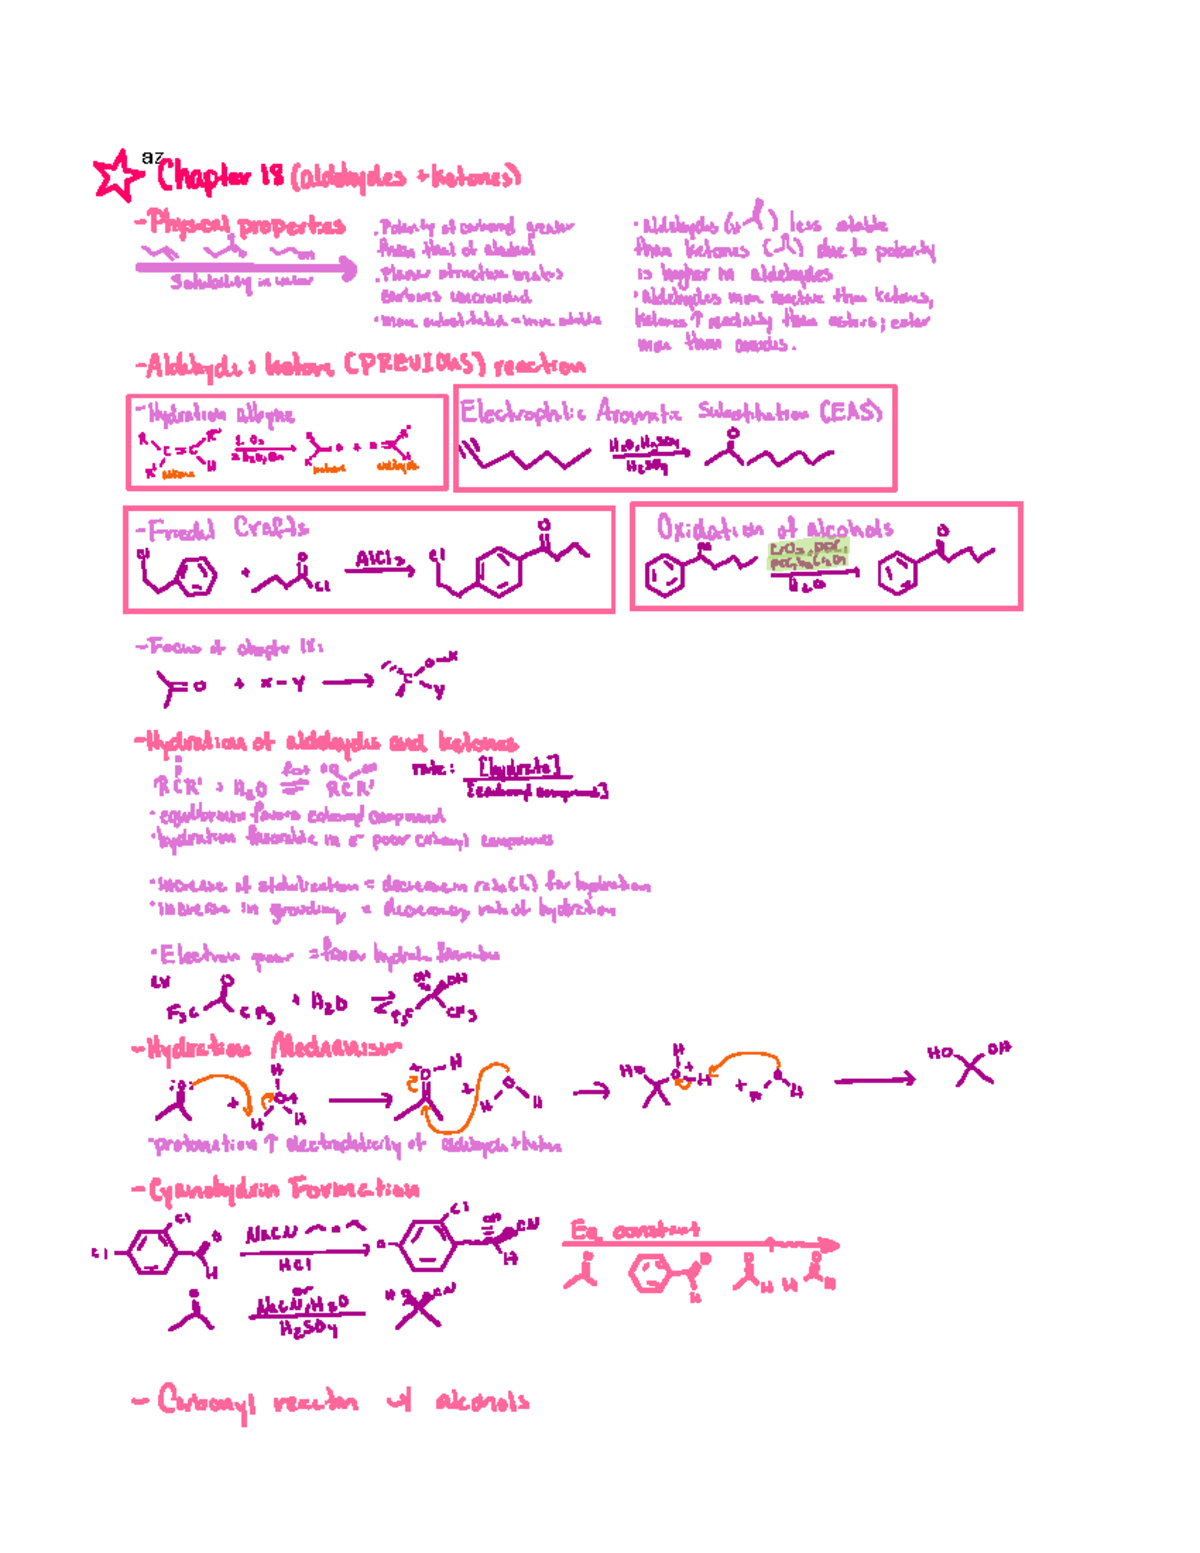 az
Chapter 18 (aldehydes + ketones)
- Physical properties
Solubility in water
· Polarity of carbonyl greater
than that of alcohol
· Planar structure makes
carbons uncrowded
· more substituted = more stable
· Aldehydes ( ) less stable
than ketones ( ) due to polarity
is higher in aldehydes
· Aldehydes more reactive than ketones,
ketones ↑ reactivity than esters; ester
more than amides.
- Aldehyde & ketone (PREVIOUS) reaction
- Hydration alkyne
R R' C = C R' H
1. O3
alkene ketone aldehyde
Electrophilic Aromatic Substitution (EAS)
H2O, H2SO4
H2SO4
O
- Friedel Crafts
Cl + O Cl AlCl3 Cl O
Oxidation of alcohols
CrO3, PDC,
PCC, Na2Cr2O7
H2O
O
- Focus of chapter 18:
=O + X-Y → C O-X Y
- Hydration of aldehydes and ketones
RCR' + H2O ⇌ RCR'
fast
rate: [hydrate]
[carbonyl compound]
· equilibrium favors carbonyl compound
· hydration favorable in e- poor carbonyl compounds
· increase of stabilization = decrease in rate(k) for hydration
· increase in crowding = decreasing rate of hydration
· Electron poor = favor hydrate formation
ex
F3C O CF3 + H2O ⇌ OH OH F3C CF3
- Hydration Mechanism
:O: + H O+ H H → +O-H + O H H → HO H O+ H + O H H → HO OH
· protonation ↑ electrophilicity of aldehyde + ketone
- Cyanohydrin Formation
Cl Cl O H
NaCN
HCl
Cl OH CN H
Eq. constant
O O H O H H O H
O
or
NaCN, H2O
H2SO4
HO CN
- Carbonyl reaction w/ alcohols